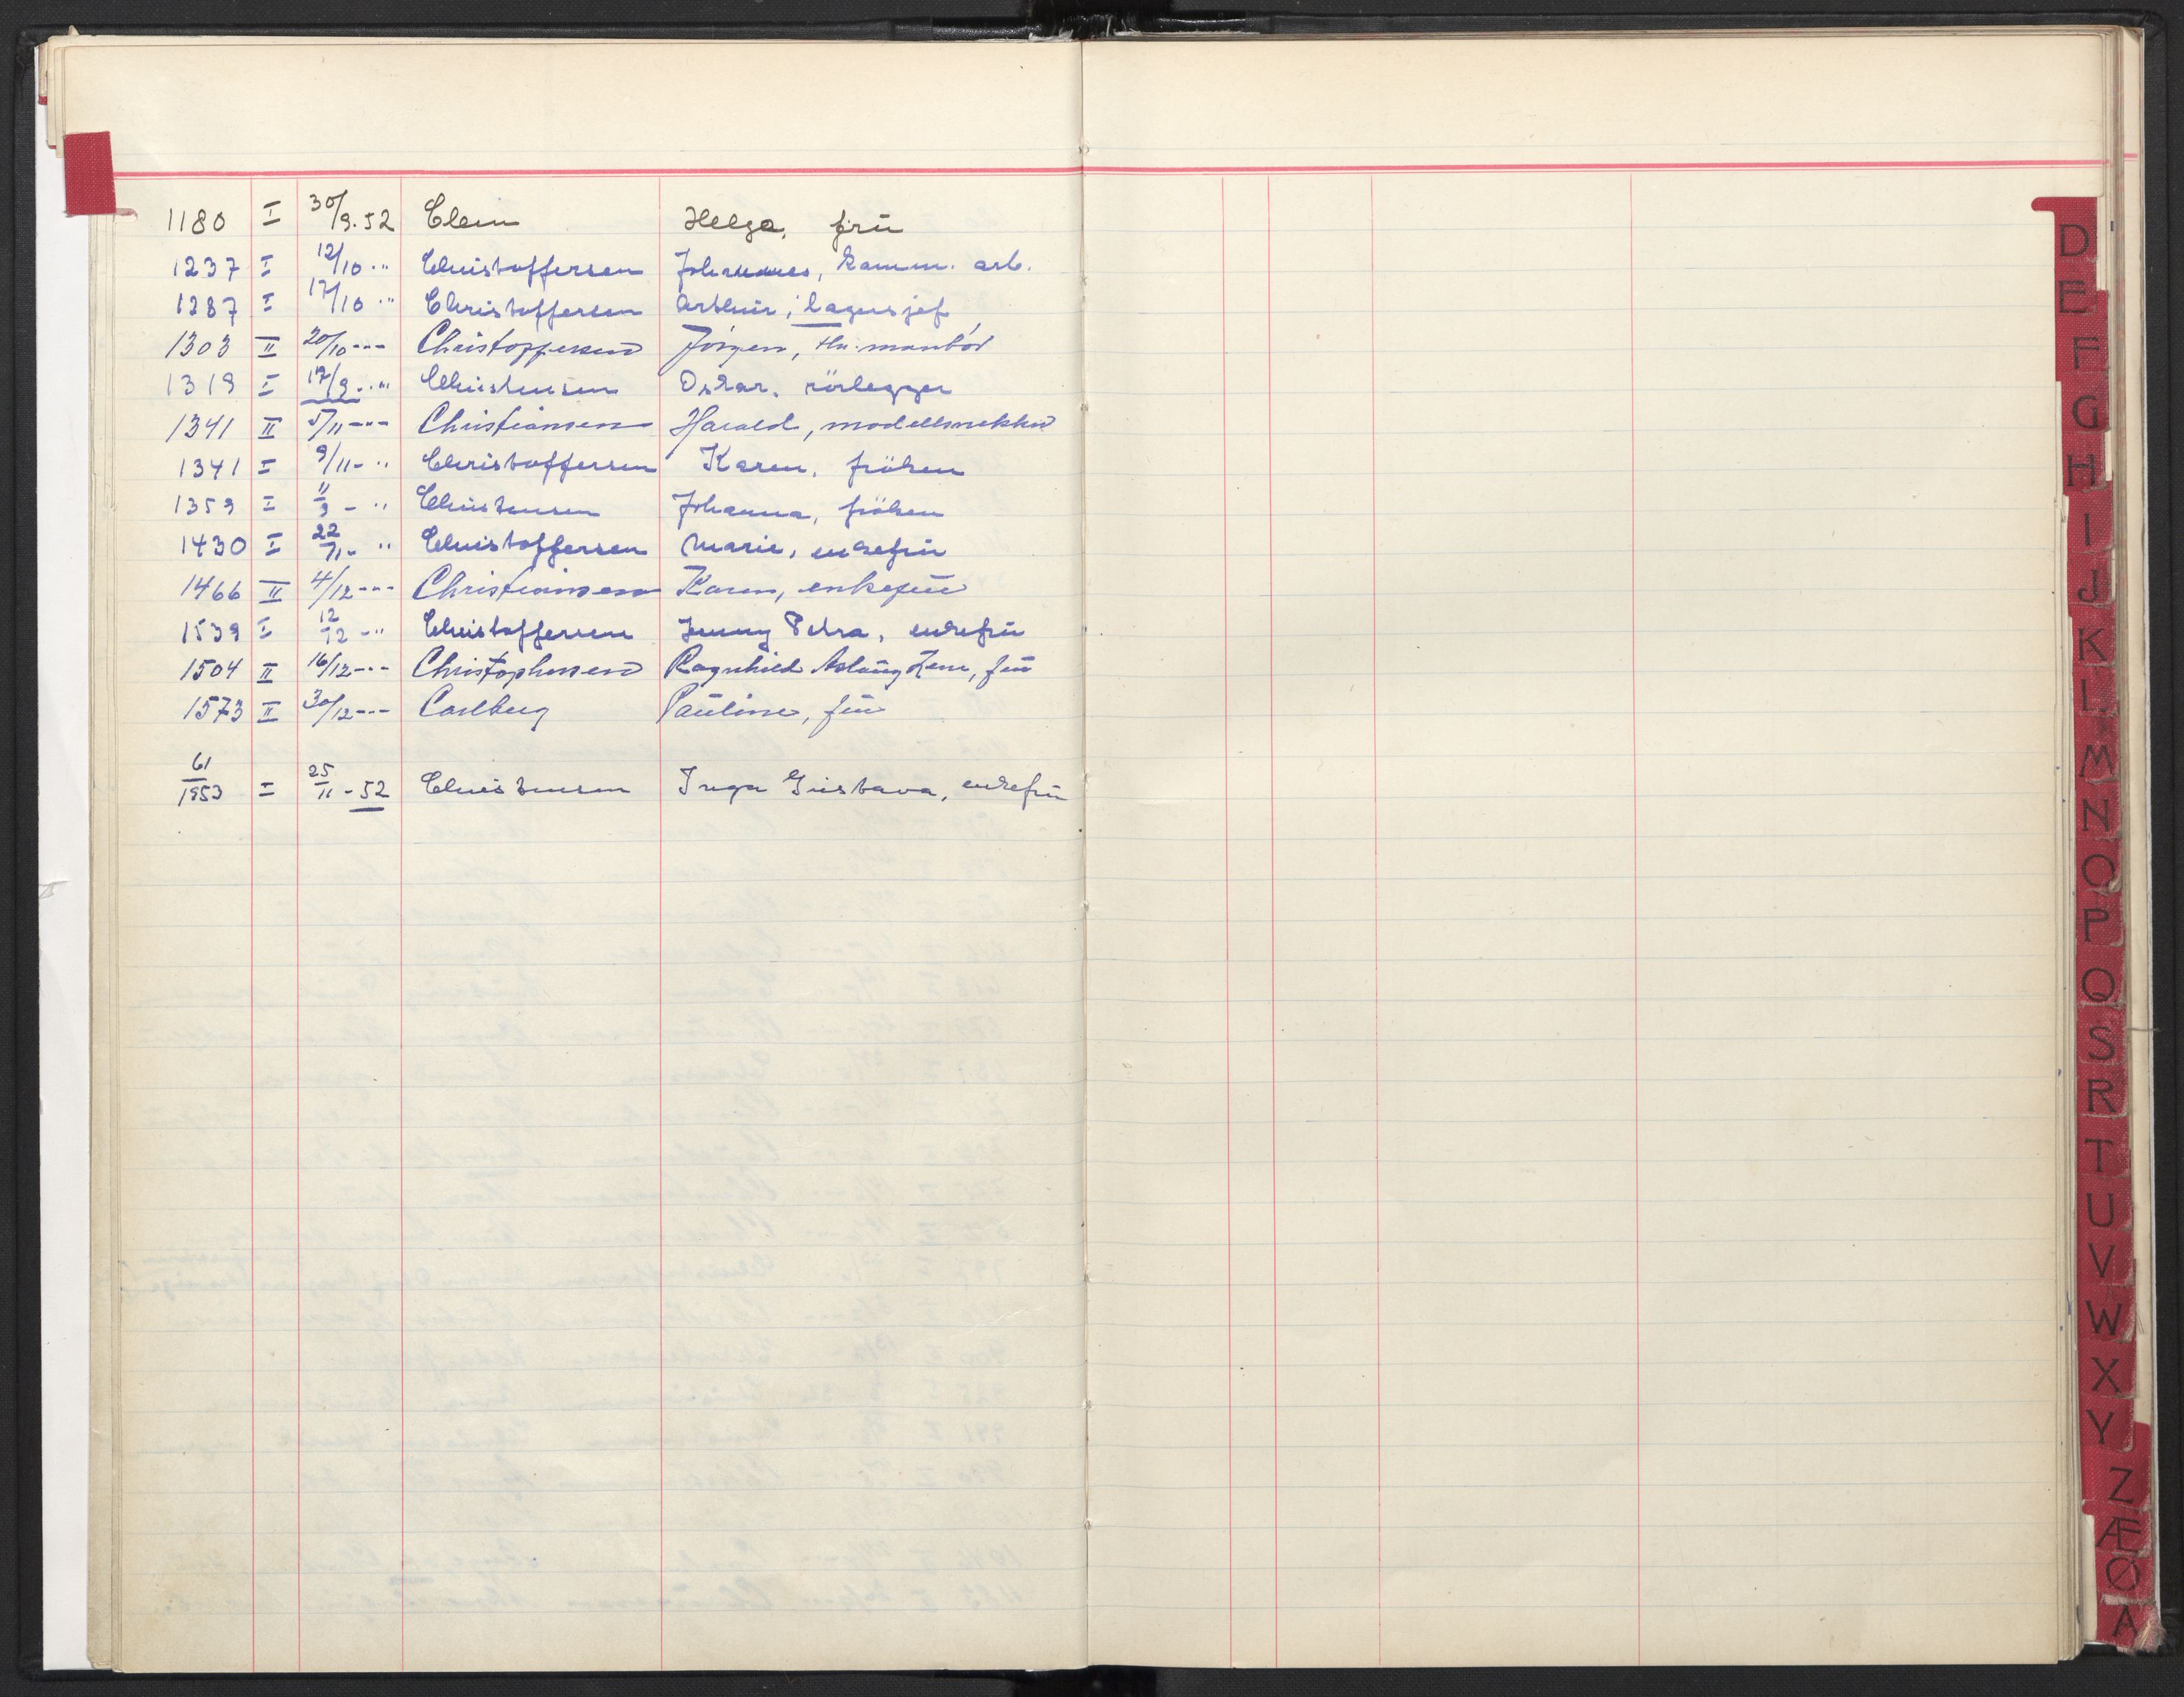 1180 I 30/9.52 Clem Helga, frü
1237 I 12/10 - " Christoffersen Johannes, komm. arb.
1287 I 17/10 - " Christoffersen Arthur, lagersjef
1303 II 20/10 - " - Christoffersen Jörgen,
1319 I 17/9 - " Christensen Oskar, rörlegger
1341 II 5/11 - " - Christiansen Harald, modellsnekker
1341 I 9/11 - " Christoffersen Karen, fröken
1359 I 11/9 - " Christensen Johanna, fröken
1430 I 22/11 - " Christoffersen Marie, enkefrü
1466 II 4/12 - " - Christiansen Karen, enkefrü
1539 I 12/12 - " Christoffersen Jenny Petra, enkefrü
1504 II 16/12 - " - Christophersen Ragnhild Aslaug Lene, frü
1573 II 30/12 - " - Carlberg Pauline, frü
61/1953 I 25/11 - 52 Christensen Inga Gustava, enkefrü
D
E
F
G
H
I
J
K
L
M
N
O
P
Q
S
R
T
U
V
W
X
Y
Z
Æ
Ø
A